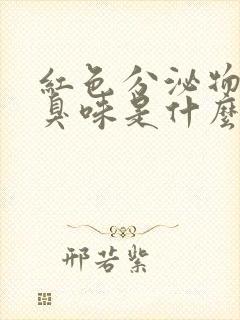 紅色分泌物
臭味是什麼
邢若紫